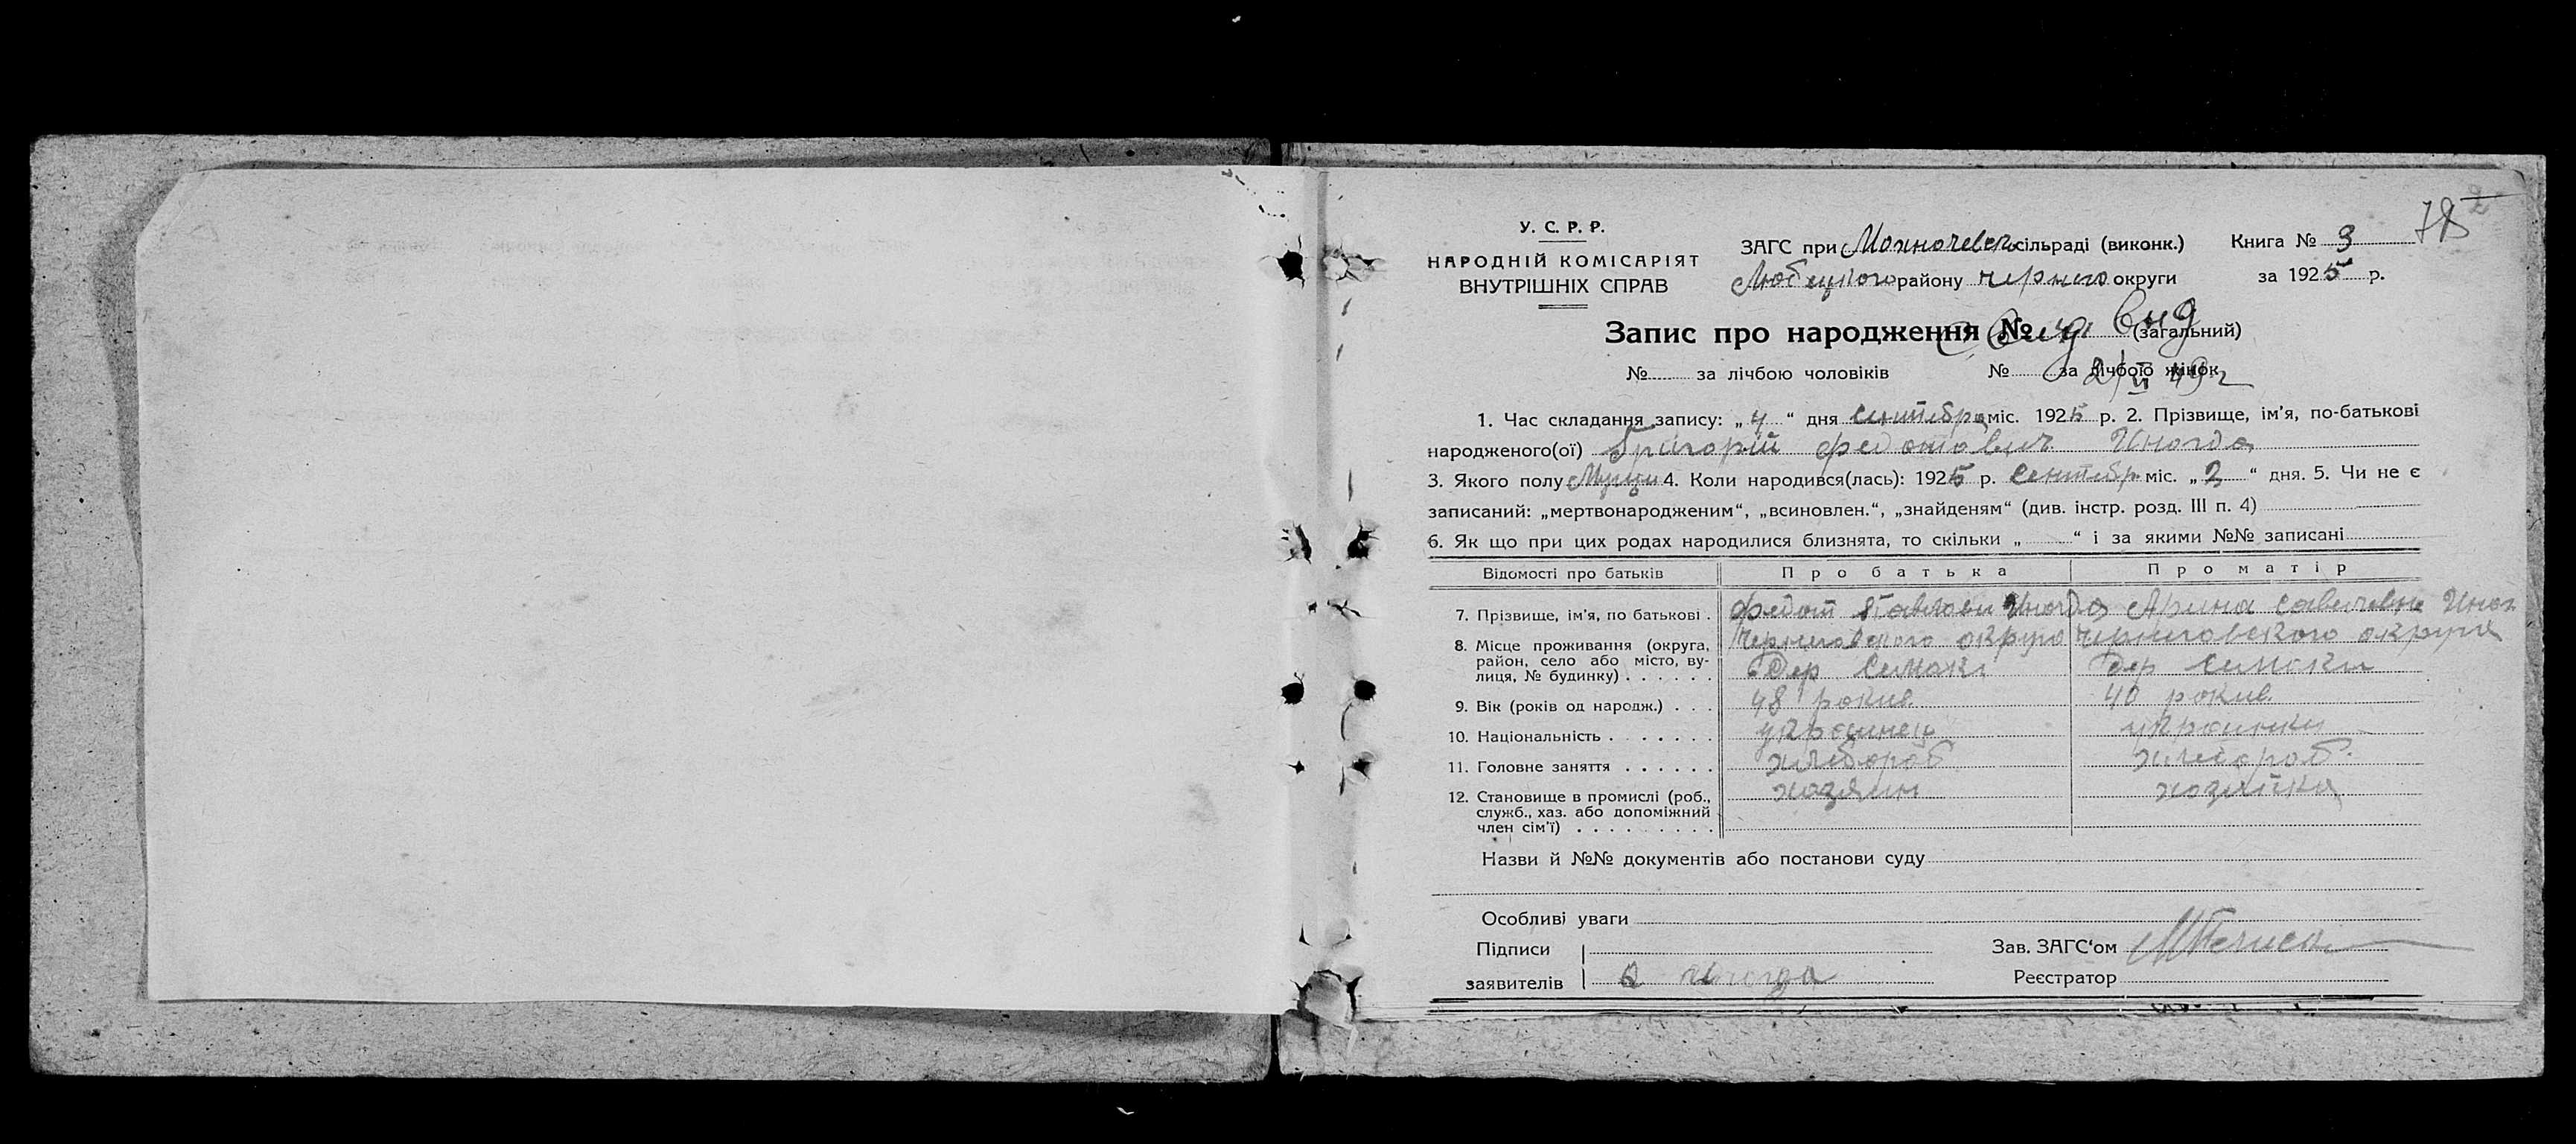 У. С. Р. Р.
НАРОДНІЙ КОМІСАРІЯТ
ВНУТРІШНІХ СПРАВ
ЗАГС при сільраді (виконк.) Книга № 3
Любецкого району округи за 1925 р.
Запис про народження № (загальний)
№ за лічбою чоловіків № за лічбою жінок
1. Час складання запису: „4“ дня сентебра міс. 1925 р. 2. Прізвище, ім'я, по-батькові
народженого(ої) Григорій Федотович Иногда
3. Якого полу 4. Коли народився(лась): 1925 р. Сентебр міс. „2“ дня. 5. Чи не є
записаний: „мертвонародженим“, „всиновлен.“, „знайденям“ (див. інстр. розд. III п. 4)
6. Як що при цих родах народилися близнята, то скільки „ “ і за якими №№ записані
Відомості про батьків Про батька Про матір
7. Прізвище, ім'я, по батькові . Федот Павлови Иногда Арина Савельевна
8. Місце проживання (округа, Черниговского округа Черниговского округа
район, село або місто, ву- Дер Дер
лиця, № будинку) . . . . . .
9. Вік (років од народж.) . . . 48 рокив 40 рокив
10. Національність . . . . . . . украинец украинки
11. Головне заняття . . . . . . хлебороб хлебороб.
12. Становище в промислі (роб., хазяин хозяйка
служб., хаз. або допоміжний
член сім'ї) . . . . . . . . .
Назви й №№ документів або постанови суду
Особливі уваги
Підписи Зав. ЗАГС‘ом
заявителів Иногда Реєстратор